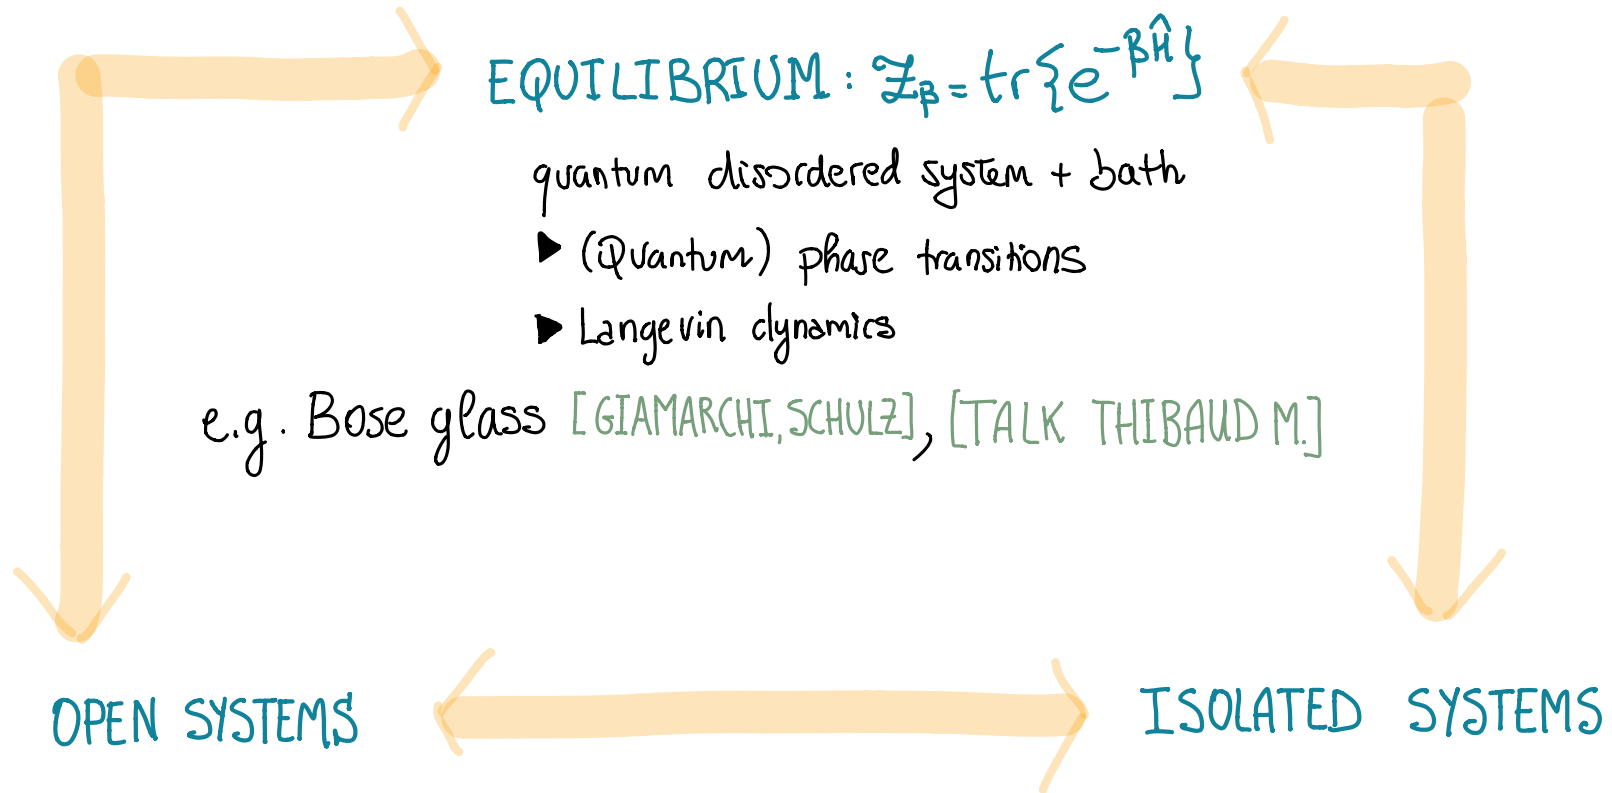 EQUILIBRIUM: Z_β = tr{e^{-βĤ}}
quantum disordered system + bath
▶ (Quantum) phase transitions
▶ Langevin dynamics
e.g. Bose glass [GIAMARCHI, SCHULZ], [TALK THIBAUD M.]
OPEN SYSTEMS
ISOLATED SYSTEMS